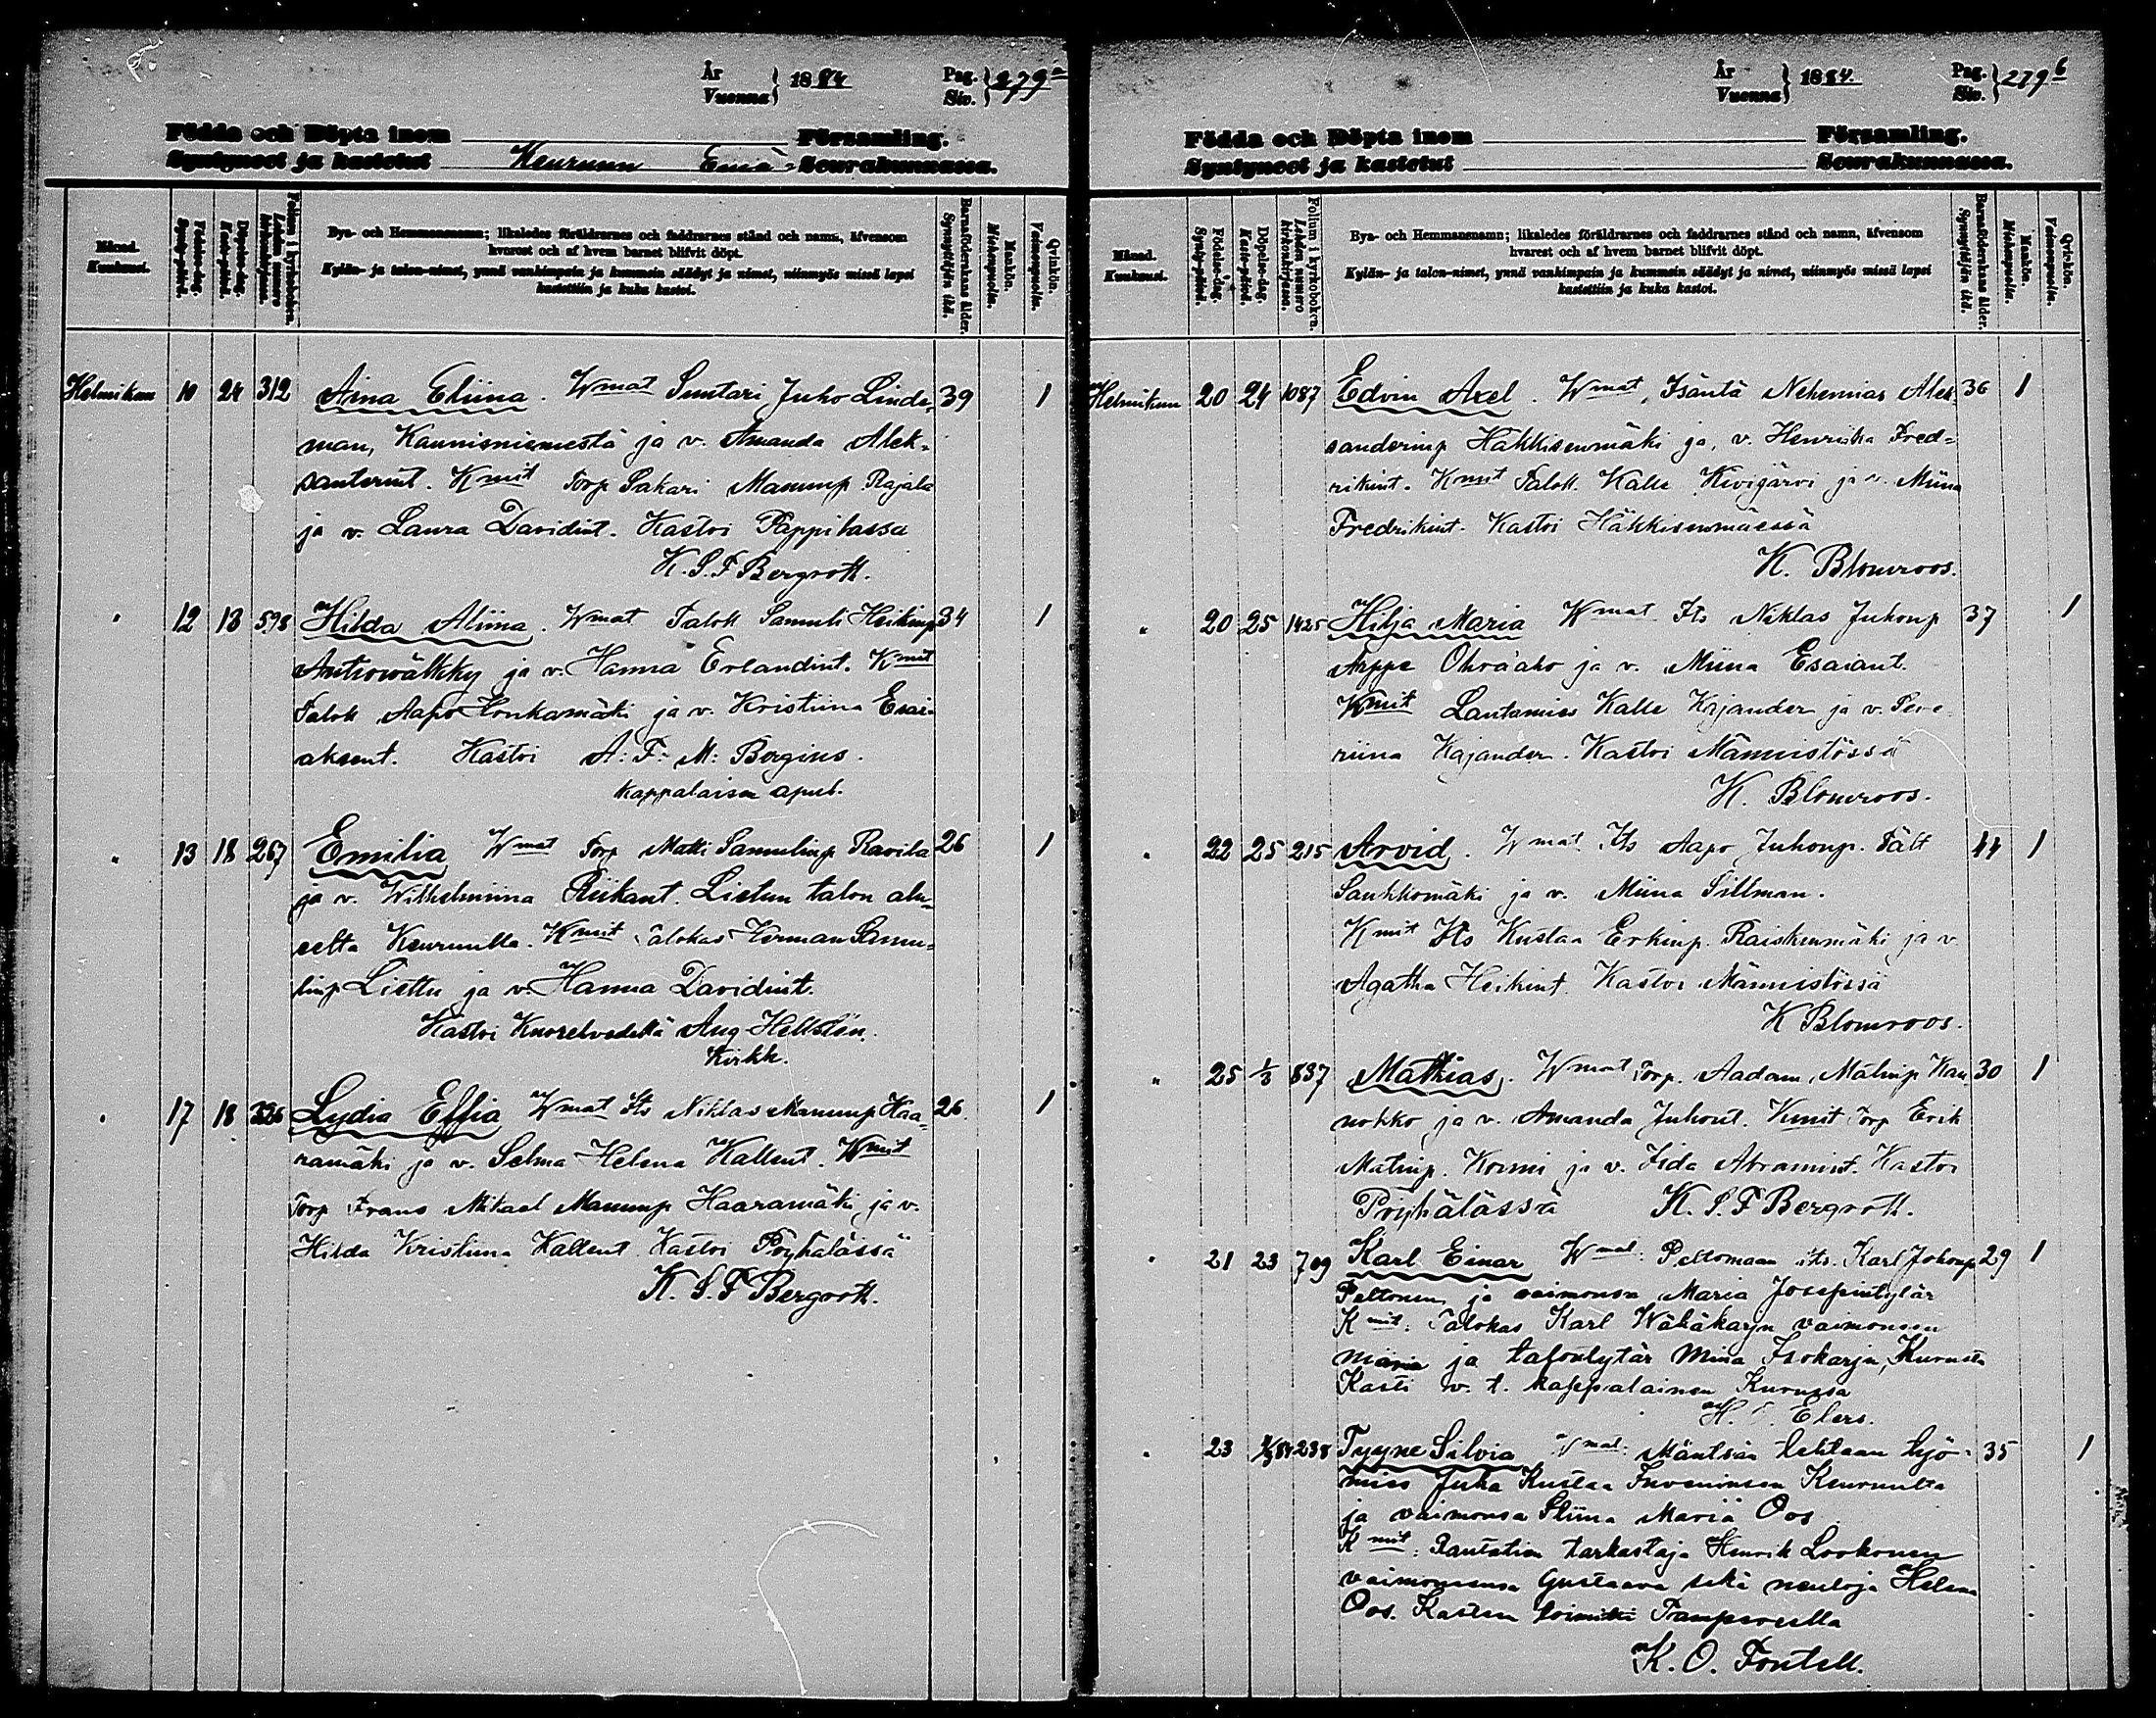 År
Vuonna } 1884
Pag.
Siv. } 279 a
Födda och Döpta inom Församling.
Syntyneet ja kastetut Keuruun Emä- Seurakunnassa.
Månad.
Kuukausi.
Födelse-dag.
Synty-päivä.
Döpelse-dag.
Kaste-päivä.
Folium i kyrkoboken.
Lehden numero kirkonkirjassa.
Bya- och Hemmansnamn; likaledes föräldrarnes och faddrarnes stånd och namn, äfvensom
hvarest och af hvem barnet blifvit döpt.
Kylän- ja talon-nimet, ynnä vanhimpain ja kummein säädyt ja nimet, niinmyös missä lapsi
kastettiin ja kuka kastoi.
Barnaföderskans ålder.
Synnyttäjän ikä.
Mankön.
Miehenpuolia.
Qvinkön.
Vaimonpuolia.
Helmikuu 10 24 312 Aina Eliina. Wmat Suutari Juho Linde- 39 1
man, Kaunisniemestä ja v. Amanda Alek-
santerint. Kmit Torp Sakari Manunp Rajala
ja v. Laura Davidint. Kastoi Pappilassa
K. S. F Bergroth.
" 12 13 598 Hilda Aliina. Wmat Talok Samuli Heikinp 34 1
ja v. Hanna Erlandint. Kmit
Talok Aapo Honkamäki ja v. Kristiina Esai-
aksent. Kastoi A: F: M: Bergius.
kappalaisen apul.
" 13 18 267 Emilia Wmat Torp Matti Samulinp Ravila 26 1
ja v. Wilhelmiina Riikant. Liettun talon alu-
eelta Keuruulla. Kmit Talokas Herman Samu-
linp Liettu ja v. Hanna Davidint.
Kastoi Kuorelvedellä Aug Hellstén.
Kirkk.
" 17 18 Lydia Effia Wmat Its Niklas Manunp Haa- 26 1
ramäki ja v. Selma Helena Kallent. Kmit
Torp Frans Mikael Manunp Haaramäki ja v.
Hilda Kristiina Kallent Kastoi Pöyhälässä
K. S. F Bergroth.
År
Vuonna } 1884
Pag.
Siv. } 279 b
Födda och Döpta inom Församling.
Syntyneet ja kastetut Seurakunnassa.
Månad.
Kuukausi.
Födelse-dag.
Synty-päivä.
Döpelse-dag.
Kaste-päivä.
Folium i kyrkoboken.
Lehden numero kirkonkirjassa.
Bya- och Hemmansnamn; likaledes föräldrarnes och faddrarnes stånd och namn, äfvensom
hvarest och af hvem barnet blifvit döpt.
Kylän- ja talon-nimet, ynnä vanhimpain ja kummein säädyt ja nimet, niinmyös missä lapsi
kastettiin ja kuka kastoi.
Barnaföderskans ålder.
Synnyttäjän ikä.
Mankön.
Miehenpuolia.
Qvinkön.
Vaimonpuolia.
Helmikuu 20 24 1087 Edvin Axel. Wmat, Isäntä Nehemias Alek- 36 1
sanderinp Häkkisenmäki ja, v. Henrika Fred-
rikint. Kmit Talok. Kalle Kivijärvi ja v. Miina
Fredrikint. Kastoi Häkkisenmäessä
K. Blomroos.
" 20 25 1425 Hilja Maria Wmat Its Niklas Juhonp 37 1
Arppe Ohra'aho ja v. Miina Esaiant.
Kmit Lautamies Kalle Kajander ja v. Seve-
riina Kajander. Kastoi Männistössä
K. Blomroos.
" 22 25 215 Arvid. Wmat Its Aapo Juhonp. Fält 44 1
Saukkomäki ja v. Miina Sillman.
Kmit Its Kustaa Erkinp. Raiskinmäki ja v.
Agatha Heikint. Kastoi Männistössä
K Blomroos.
" 25 1/3 837 Mathias. Wmat Torp. Aadam Matinp Kan- 30 1
nokko ja v. Amanda Juhont. Kmit Torp Erik
Matinp. Kormi ja v. Iida Abramint. Kastoi
Pöyhälässä K. S. F Bergroth.
" 21 23 709 Karl Einar Wmat: Peltomaan its. Karl Johonp 29 1
Peltonen ja vaimonsa Maria Josefintytär
Kmit: Talokas Karl Wähäkarju vaimonsa
Maria ja talontytär Mina Isokarju, Kurusta
Kasti v. t. kappalainen Kurussa
H. Elers.
" 23 238 Tyyne Silvia Wmat: Mäntsän tehtaan työ- 35 1
mies Juha Kustaa Keuruulla
ja vaimonsa Stiina Maria Oos
Kmit: Rautatien tarkastaja Henrik Lookonen
vaimonensa Gustaava sekä neuloja Helena
Oos. Kasteen toimitti Tampereella
K. O. Fontell.